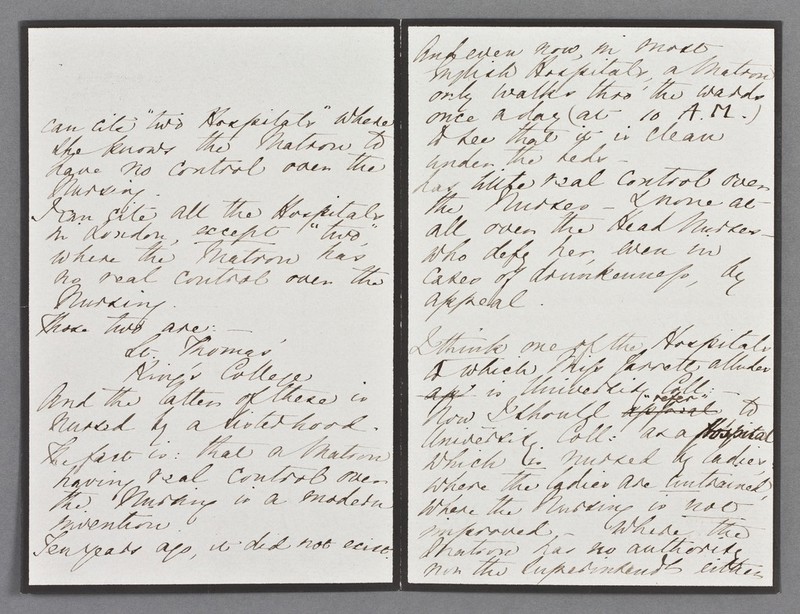 can cite "two Hospitals" where
she knows the Matron to
have no control over the
Nursing.
I can cite all the Hospitals
in London, except "two",
where the Matron has
no real control over the
Nursing.
Those two are: —
St. Thomas'
King's College
And the latter of these is
nursed by a sisterhood.
The fact is: that a Matron
having real control over
the Nursing is a modern
invention.
Ten years ago, it did not exist.
And even now, in most
English Hospitals, a Matron
only walks thro' the wards
once a day (at 10 A.M.)
to see that it is clean
under the beds —
has little real control over
the Nurses — & none at
all over the Head Nurses —
who defy her, even in
cases of drunkenness, by
appeal.
I think one of the Hospitals
to which Miss Garrett alludes
is University Coll: —
"refer"
Now I should appeal to
University Coll: as a Hospital
which is nursed by ladies:
where the ladies are untrained,
where the Nursing is not
improved, — where the
Matron has no authority
nor the Superintendt either